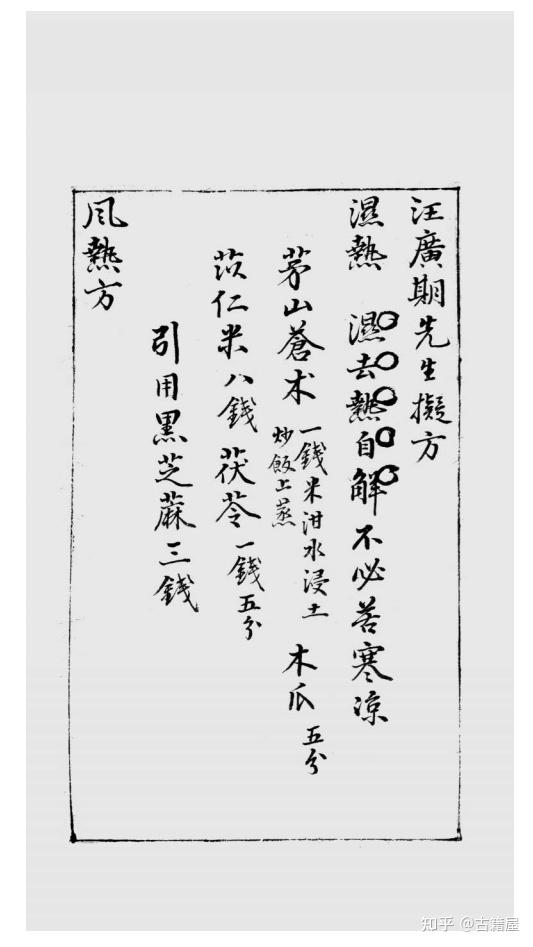 汪廣期先生擬方
濕熱 濕去熱自解不必苦寒凉
茅山蒼术 一錢米泔水浸土炒飯上蒸 木瓜 五分
苡仁米八錢 茯苓一錢五分
引用黑芝蔴三錢
風熱方
知乎 @古籍屋